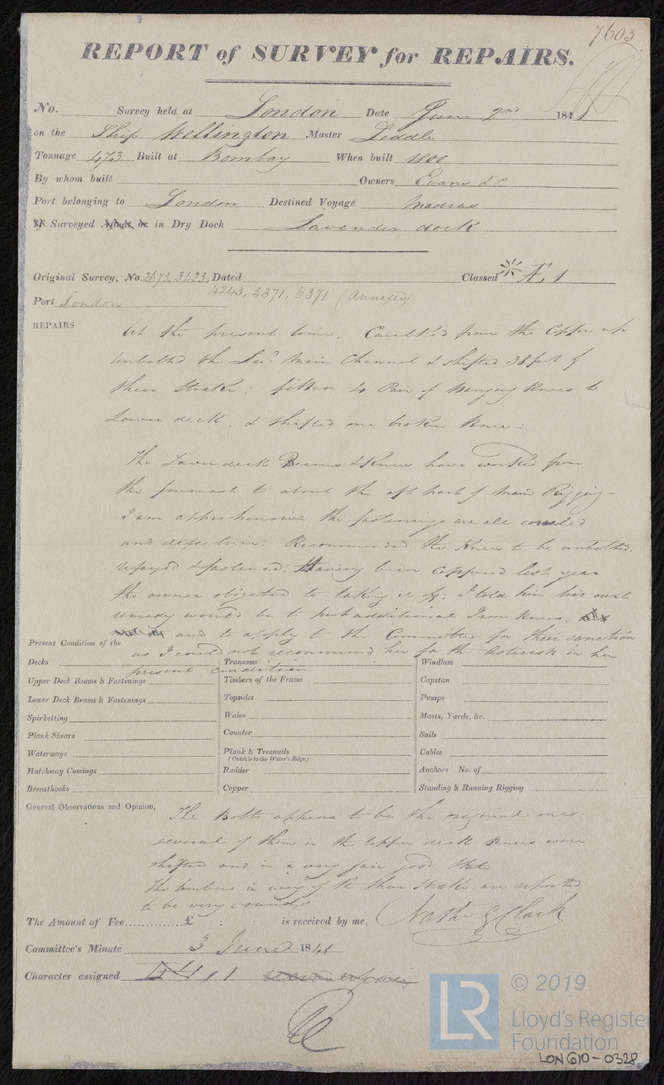 7603
REPORT of SURVEY for REPAIRS.
No. Survey held at London Date June 2nd 1841
on the Ship Wellington Master Liddle
Tonnage 473 Built at Bombay When built 1800
By whom built Owners Evans &c
Port belonging to London Destined Voyage Madras
If Surveyed Afloat or in Dry Dock Lavender dock
Original Survey, No. 2672, 3623, Dated Classed Æ 1
4243, 5371, 6371 (Annexed)
Port London
REPAIRS
At the present time. Caulked from the Copper up
unbolted the Main Channel & shifted 38 feet of
their Strakes: 4 Pair of Hanging Knees to
Lower deck, & shifted one broken Knee:
The Lower deck Beams & Knees have worked from
the foremast to about the aft part of Main Rigging-
I am apprehensive the fastenings are all
and defective: Recommended the Knees to be unbolted,
& fastened; Having been coppered last year
the owner objected to taking it off; I told him his only
remedy would be to put additional Iron Knees,
and to apply to the Committee for their sanction
as I could not recommend her for the Asterisk in her
present condition
Present Condition of the
Decks Transoms Windlass
Upper Deck Beams & Fastenings Timbers of the Frame Capstan
Lower Deck Beams & Fastenings Topsides Pumps
Spirketting Wales Masts, Yards, &c.
Plank Shears Counter Sails
Waterways Plank & Treenails Cables
(Outside to the Water's Edge)
Hatchway Coamings Rudder Anchors No. of
Breasthooks Copper Standing & Running Rigging
General Observations and Opinion,
The Bolts appear to be the original ones
several of them in the Upper deck Knees were
shifted and in a very fair good state
The timbers in way of the Shear Strakes are reported
to be very sound
The Amount of Fee £ : : is received by me, Nathl G Clark
Committee's Minute 3 June 1841
Character assigned 1
LR
© 2019
Lloyd's Register
Foundation
LON610-0328